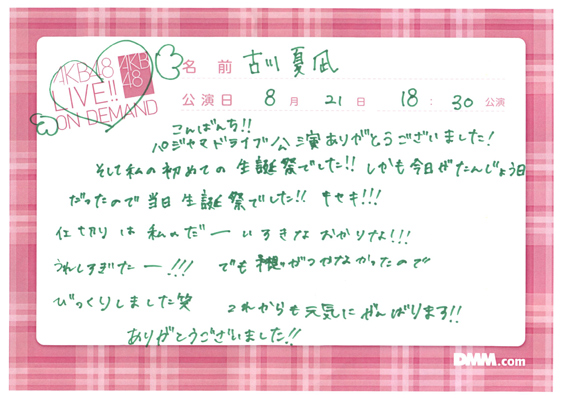 AKB48
LIVE!!
ON DEMAND
AKB
48
名前 古川夏凪
公演日 8月21日 18:30公演
こんばんち!!
パジャマドライブ公演ありがとうございました!
そして私の初めての生誕祭でした!! しかも今日がたんじょう日
だったので当日生誕祭でした!! キセキ!!!
仕切りは私のだーいすきなおかりな!!!
うれしすぎたー!!! でも がつかなかったので
びっくりしました笑 これからも元気にがんばりまる!!
ありがとうございました!!
DMM.com